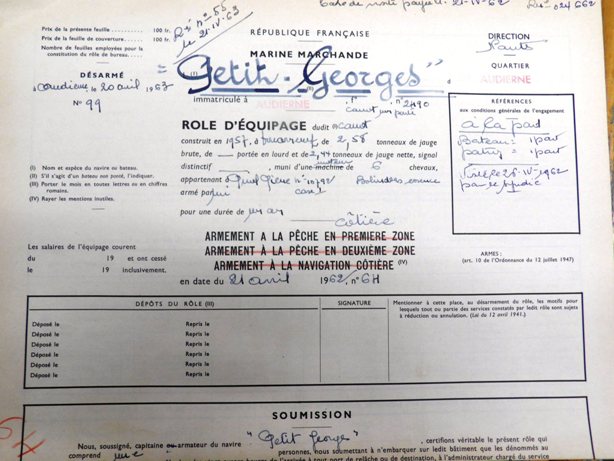 21-IV-62
024 662
Rs n° 55
le 21-IV-62
Prix de la présente feuille - - - - - - 100 fr.
Prix de la feuille de couverture - - - - 100 fr.
Nombre de feuilles employées pour la constitution du rôle de bureau.
RÉPUBLIQUE FRANÇAISE
MARINE MARCHANDE
DIRECTION
Nantes
QUARTIER
AUDIERNE
DÉSARMÉ
20 avril 1963
N° 99
= "Petit-Georges".
immatriculé à
AUDIERNE
n° 2490
ROLE D'ÉQUIPAGE dudit canot
construit en 1957, à de 2,58 tonneaux de jauge
brute, de — portée en lourd et de 2,44 tonneaux de jauge nette, signal
distinctif , muni d'une machine de 6 chevaux,
moteur
appartenant à
armé par lui
pour une durée de un an
côtière
ARMEMENT A LA PÊCHE EN PREMIERE ZONE
ARMEMENT A LA PÊCHE EN DEUXIÈME ZONE
ARMEMENT A LA NAVIGATION CÔTIÈRE (IV)
en date du 21 avril 1962, n° 64
RÉFÉRENCES
aux conditions générales de l'engagement
à la part
Bateau: 1 part
patron: 1 part
(I) Nom et espèce du navire ou bateau.
(II) S'il s'agit d'un bateau non ponté, l'indiquer.
(III) Porter le mois en toutes lettres ou en chiffres romains.
(IV) Rayer les mentions inutiles.
Les salaires de l'équipage courent
du 19 et ont cessé
le 19 inclusivement.
ARMES :
(art. 10 de l'Ordonnance du 12 juillet 1947)
DÉPÔTS DU RÔLE (III)
SIGNATURE
Mentionner à cette place, au désarmement du rôle, les motifs pour lesquels tout ou partie des services constatés par ledit rôle sont sujets à réduction ou annulation. (Loi du 12 avril 1941.)
Déposé le Repris le
Déposé le Repris le
Déposé le Repris le
Déposé le Repris le
Déposé le Repris le
SOUMISSION
Nous, soussigné, capitaine ou armateur du navire "Petit Georges" , certifions véritable le présent rôle qui
comprend une personnes, nous soumettant à n'embarquer sur ledit bâtiment que les dénommés au